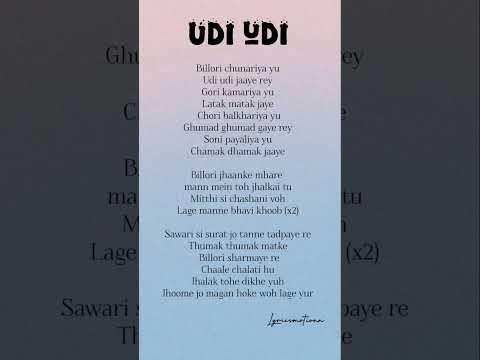 UDI UDI
Billori chunariya yu
Udi udi jaaye rey
Gori kamariya yu
Latak matak jaye
Chori balkhariya yu
Ghumad ghumad gaye rey
Soni payaliya yu
Chamak dhamak jaaye
Billori jhaanke mhare
mann mein toh jhalkai tu
Mitthi si chashani voh
Lage manne bhavi khoob (x2)
Sawari si surat jo tanne tadpaye re
Thumak thumak matke
Billori sharmaye re
Chaale chalati hu
Jhalak tohe dikhe yuh
Jhoome jo magan hoke woh lage yur
Lage (x2)
Sawari si aye re
Th
Lyricsmotionn